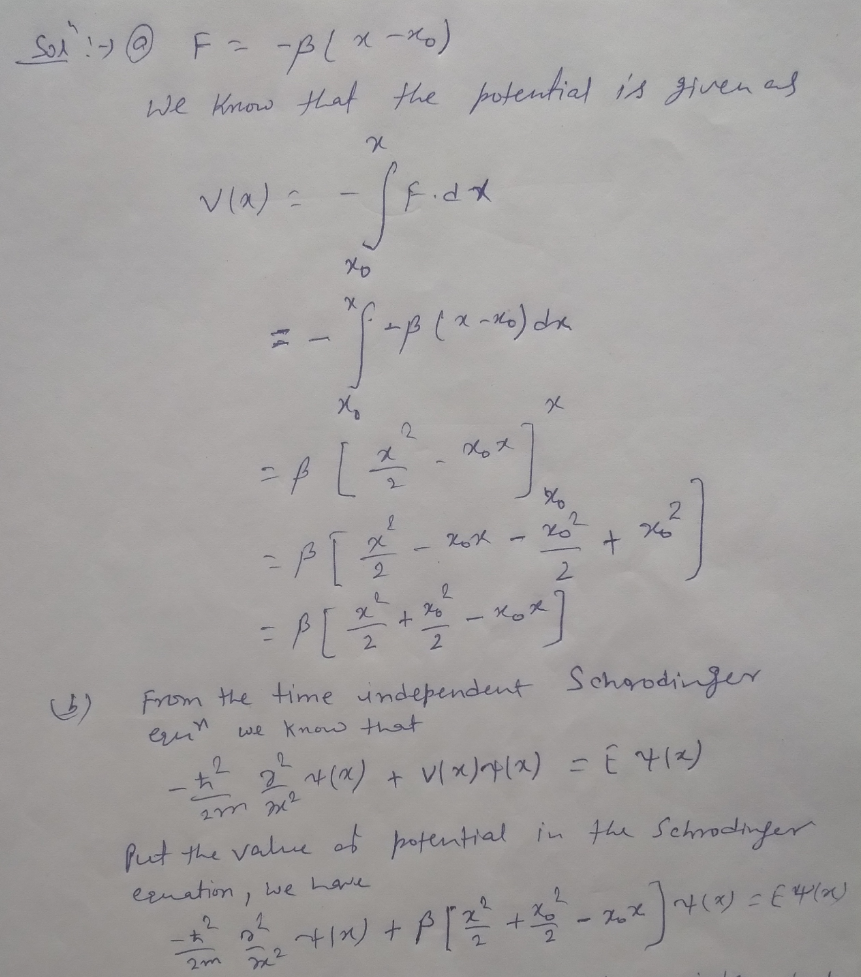 Solⁿ :→ ⓐ F = -β(x - x₀)
We know that the potential is given as
V(x) = - ∫_{x₀}^{x} F.dx
= - ∫_{x₀}^{x} -β(x - x₀) dx
= β [ x²/2 - x₀x ]_{x₀}^{x}
= β [ x²/2 - x₀x - x₀²/2 + x₀² ]
= β [ x²/2 + x₀²/2 - x₀x ]
(b) From the time independent Schrodinger
equⁿ we know that
-ħ²/2m ∂²/∂x² ψ(x) + V(x)ψ(x) = E ψ(x)
Put the value of potential in the Schrodinger
equation, we have
-ħ²/2m ∂²/∂x² ψ(x) + β [ x²/2 + x₀²/2 - x₀x ] ψ(x) = E ψ(x)